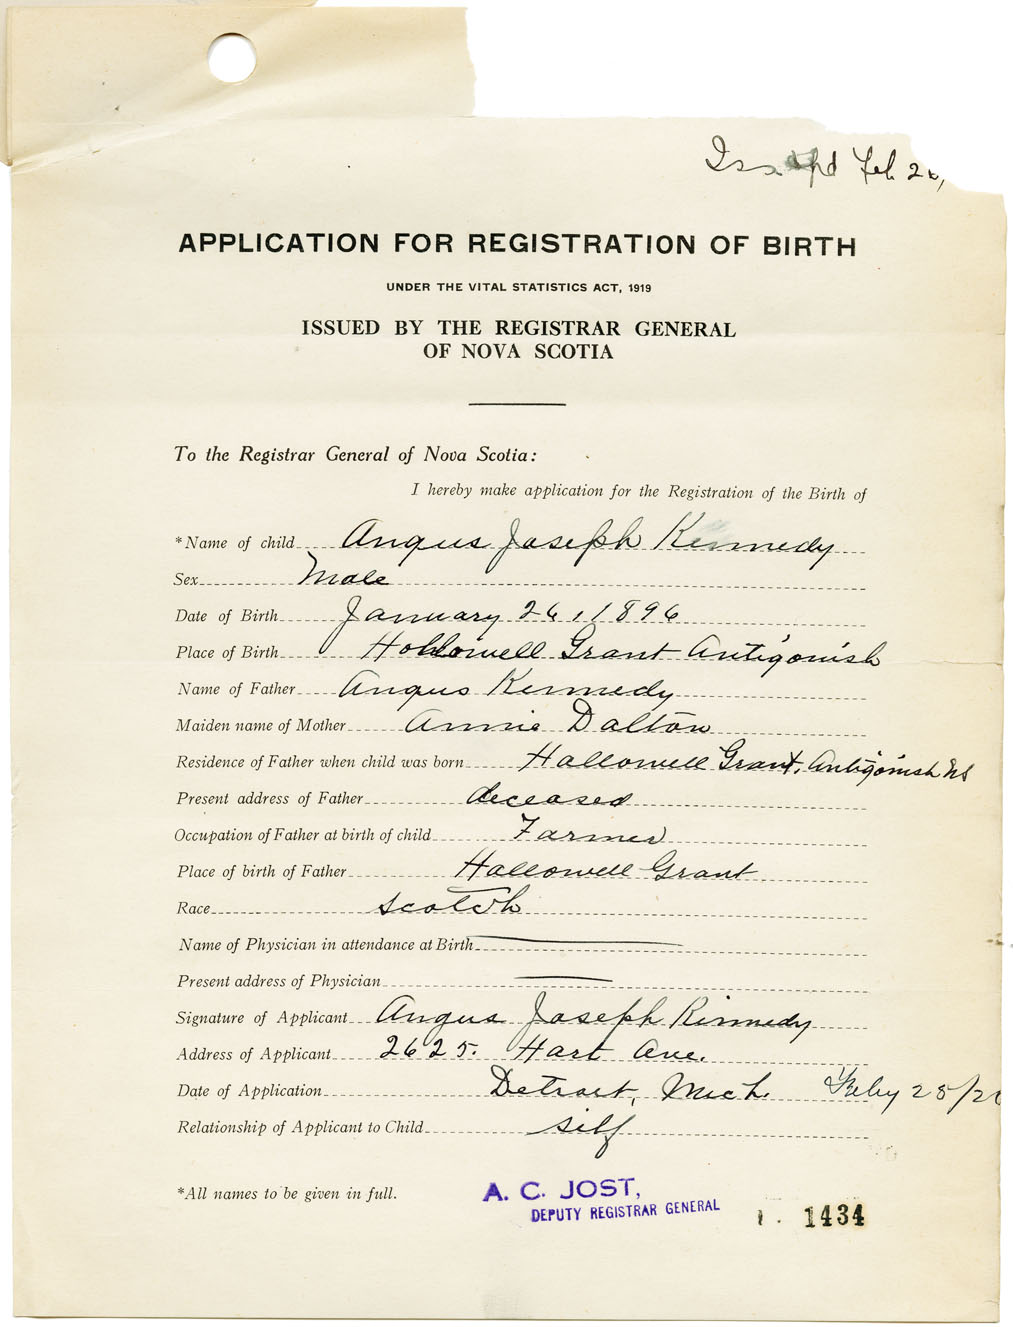 Feb. 26,
APPLICATION FOR REGISTRATION OF BIRTH
UNDER THE VITAL STATISTICS ACT, 1919
ISSUED BY THE REGISTRAR GENERAL
OF NOVA SCOTIA
To the Registrar General of Nova Scotia:
I hereby make application for the Registration of the Birth of
*Name of child Angus Joseph Kennedy
Sex Male
Date of Birth January 26, 1896
Place of Birth Hollowell Grant Antigonish
Name of Father Angus Kennedy
Maiden name of Mother Annie Dalton
Residence of Father when child was born Hallowell Grant, Antigonish NS
Present address of Father deceased
Occupation of Father at birth of child Farmer
Place of birth of Father Hallowell Grant
Race Scotch
Name of Physician in attendance at Birth
Present address of Physician
Signature of Applicant Angus Joseph Kinnedy
Address of Applicant 2625. Hart Ave.
Date of Application Detroit, Mich. Feby 25/2
Relationship of Applicant to Child self
*All names to be given in full.
A. C. JOST,
DEPUTY REGISTRAR GENERAL
1434